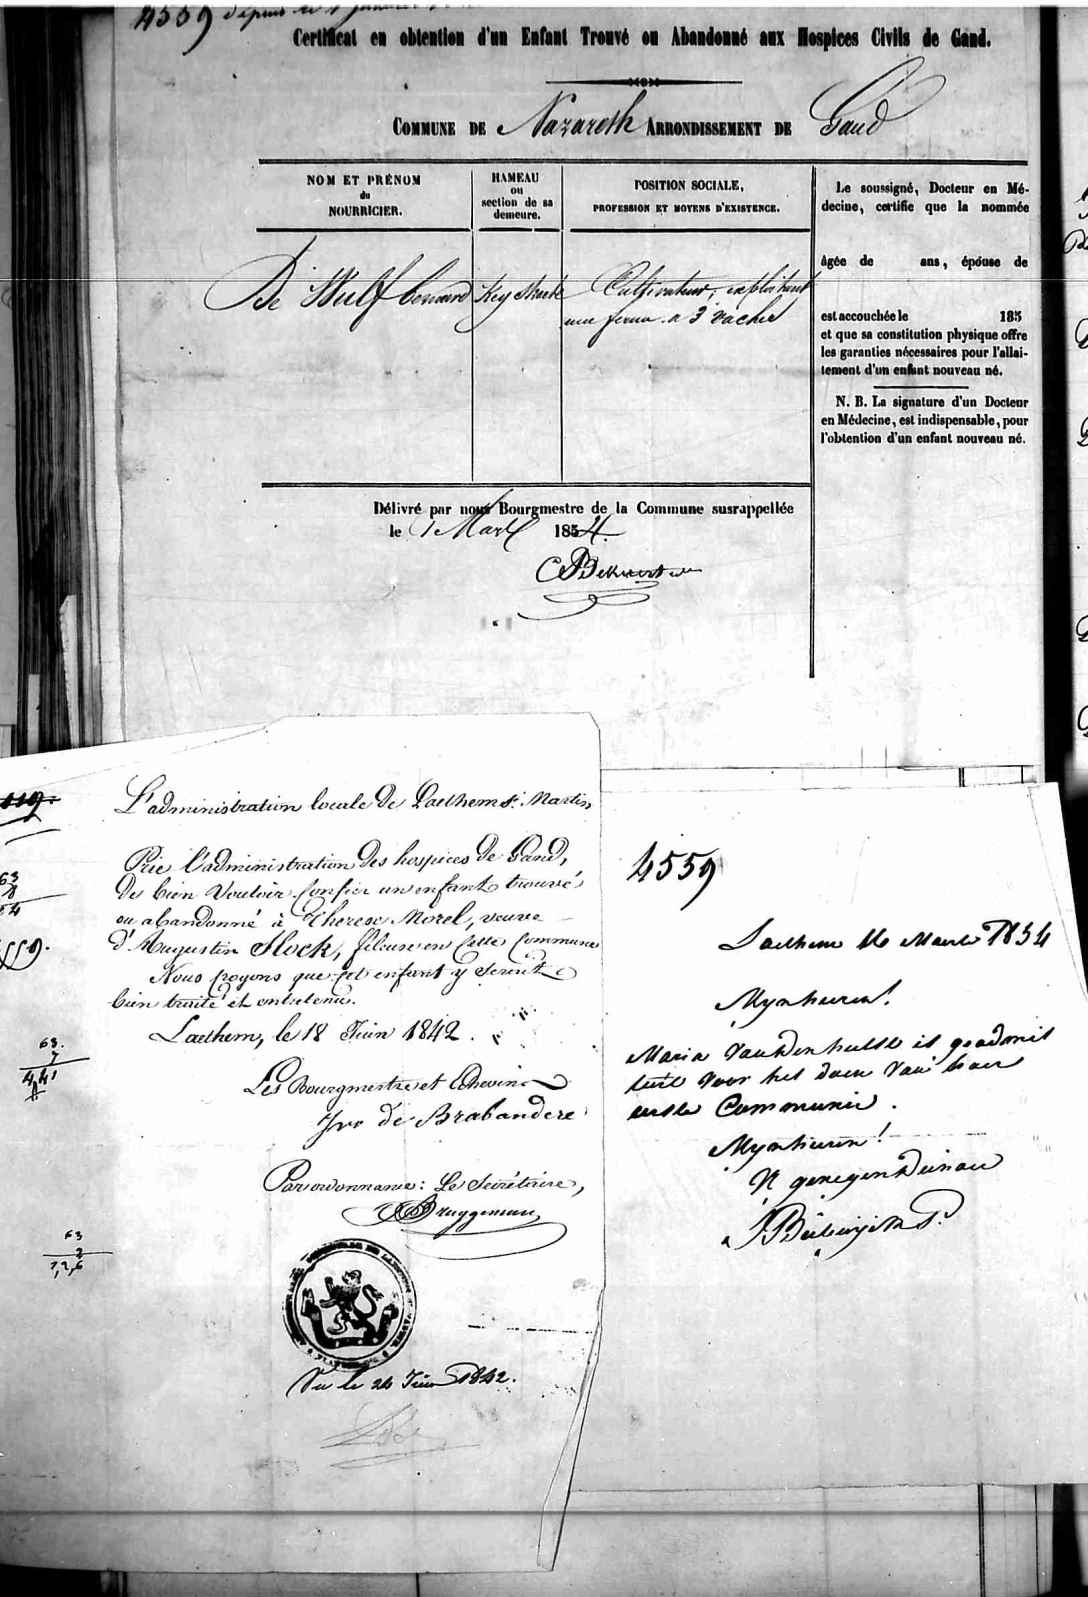 4559 depuis le 1 janvier
Certificat en obtention d'un Enfant Trouvé ou Abandonné aux Hospices Civils de Gand.
COMMUNE DE Nazareth ARRONDISSEMENT DE Gand
NOM ET PRÉNOM
du
NOURRICIER.
HAMEAU
ou
section de sa
demeure.
POSITION SOCIALE,
PROFESSION ET MOYENS D'EXISTENCE.
De Wulf bernard
Key Straete
Cultivateur, exploitant
une ferme a 3 vaches
Le soussigné, Docteur en Mé-
decine, certifie que la nommée
âgée de ans, épouse de
est accouchée le 185
et que sa constitution physique offre
les garanties nécessaires pour l'allai-
tement d'un enfant nouveau né.
N. B. La signature d'un Docteur
en Médecine, est indispensable, pour
l'obtention d'un enfant nouveau né.
Délivré par nous Bourgmestre de la Commune susrappellée
le 1 Mars 1854.
L'administration locale de Laethem St. Martin
Prie l'administration des hospices de Gand,
de bien Vouloir Confier un enfant trouvé
ou abandonné à Therese Morel, veuve
d'Augustin Flock, fileuse en Cette Commune
Nous Croyons que cet enfant y serait
bien traité et entretenu.
Laethem, le 18 Juin 1842.
Les Bourgmestre et Echevins
Yvo de Brabandere
Par ordonnance: Le Secrétaire,
Bruggeman
Vu le 24 Juin 1842.
63
8
559.
63.
7
4,41
63
2
1,26
4559
Laethem 16 Maert 1854
Mynheeren!
Maria Vanden hulse is geadmit
teert voor het doen van haer
eerste Communie.
Mynheeren!
U genegen Dienaer